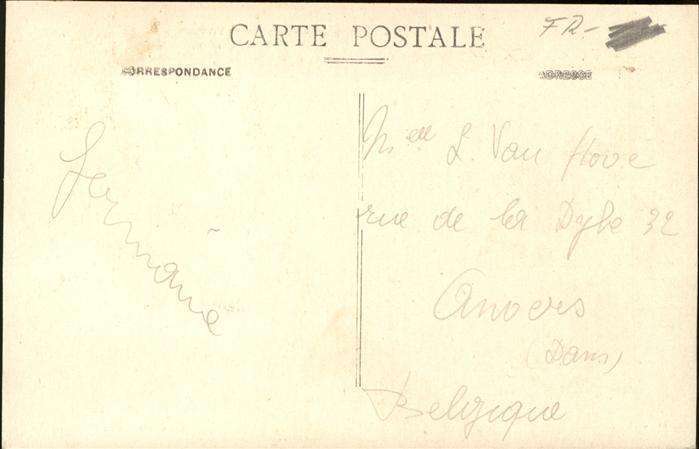 CARTE POSTALE
FR-
CORRESPONDANCE
ADRESSE
Germaine
Melle L. Van Hove
rue de la Dyle 32
Anvers
(Dam)
Belgique